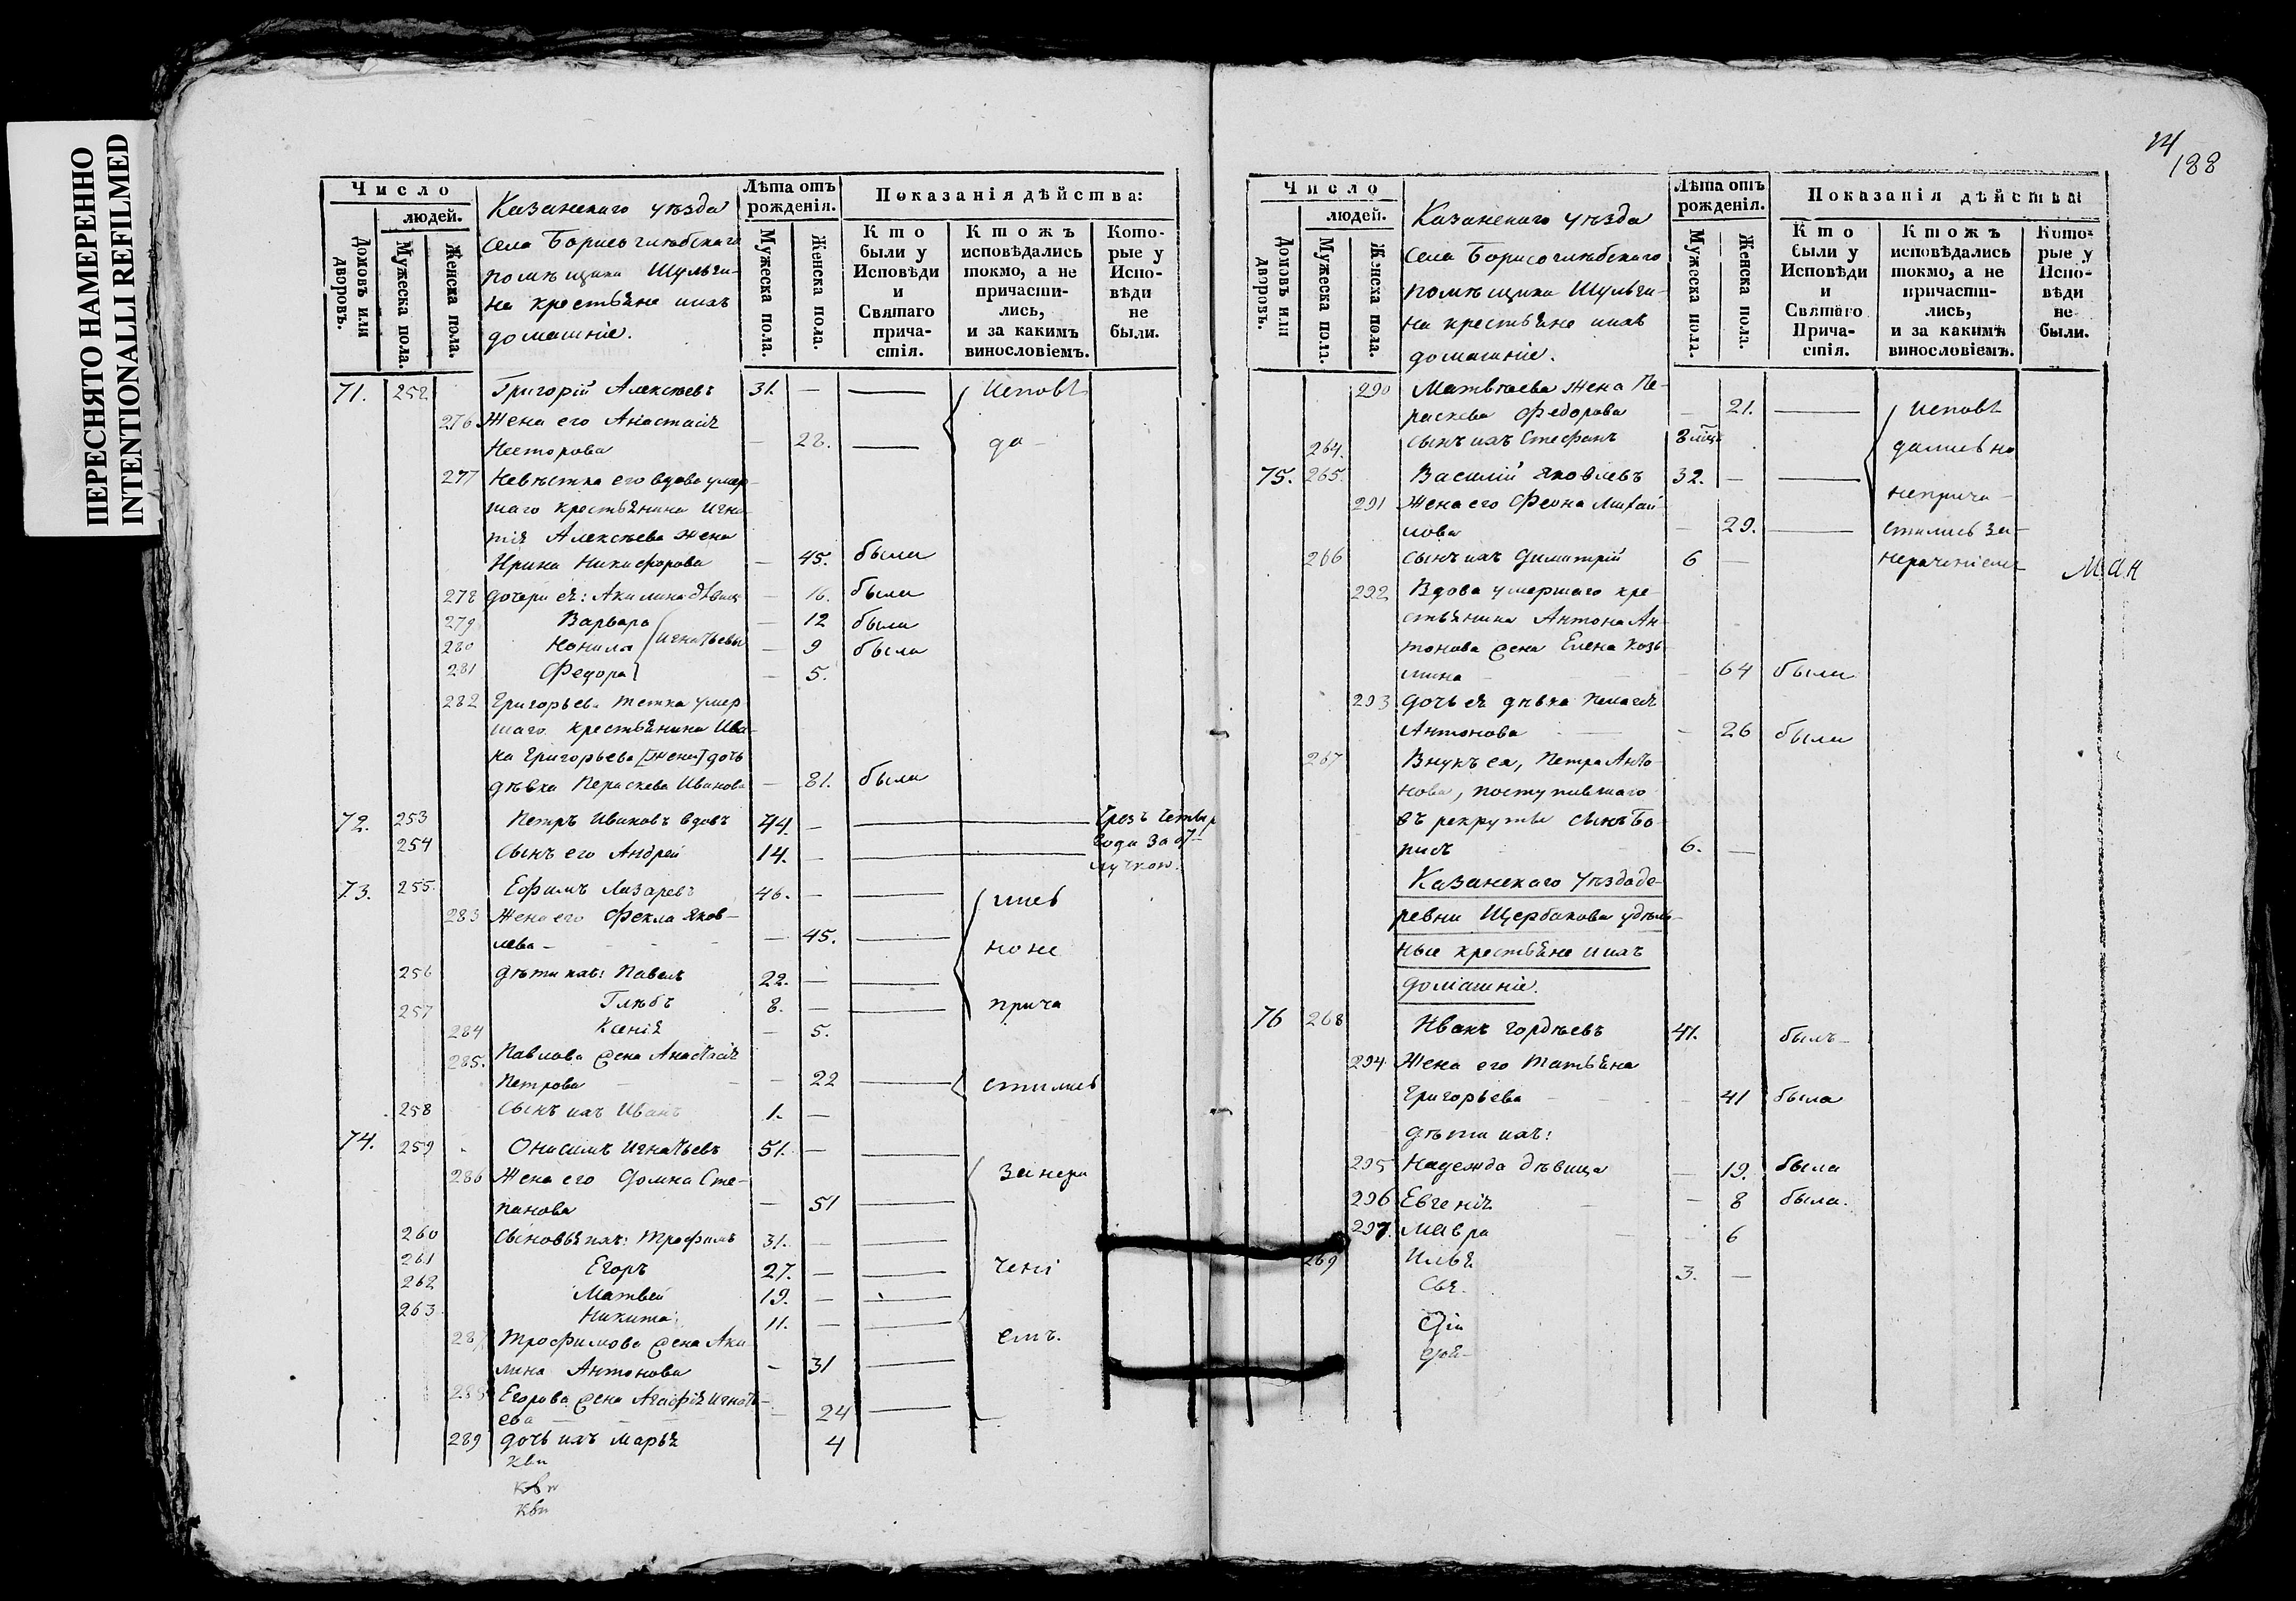 ПЕРЕСНЯТО НАМЕРЕННО
INTENTIONALLI REFILMED
Число
людей.
Домовъ или дворовъ.
Мужеска пола.
Женска пола.
Казанскаго уѣзда
села Борисоглѣбскаго
помѣщика Шульги-
на крестьяне и ихъ
домашніе.
Лѣта отъ рожденія.
Мужеска пола.
Женска пола.
Показанія дѣйства:
Кто были у Исповѣди и Святаго прича-стія.
Ктожъ исповѣдались токмо, а не причасти-лись, и за какимъ винословіемъ.
Кото-рые у Испо-вѣди не были.
71. 252 Григорій Алексѣевъ 31. — — Исповѣ
276 Жена его Анастасія
Несторова — 28. — да-
277 Невѣстка его вдова умер-
шаго крестьянина Игна
тія Алексѣева жена
Ирина Никифорова — 45. были
278 дочери ея: Акилина дѣвица — 16. были
279 Варвара — 12 были
280 Нонила Игнатьевы — 9 была
281 Федора — 5.
282 Григорьева тетка умер
шаго крестьянина Ива-
на Григорьева [жена] дочь
дѣвка Параскева Иванова — 81. были
72. 253 Петръ Ивановъ вдовъ 44. — Чрезъ четыр
254 сынъ его Андрей 14. — года за от-
лучкою.
73. 255. Ефимъ Лазаревъ 46. — — лись
283 Жена его Фекла Яков-
лева — — 45. — но не
256 дѣти ихъ: Павелъ 22. — —
257 Глѣбъ 8. — — прича
284 Ксенія — 5.
285. Павлова жена Анастасія
Петрова — 22 — стились
258 сынъ ихъ Иванъ 1. —
74. 259 Онисимъ Игнатьевъ 51. — —
286 Жена его Домна Сте-
панова — 51 — за нера
260 сыновья ихъ: Трофимъ 31. — —
261 Егоръ 27. — — чені
262 Матвей 19. — —
263 Никита 11. — —
287 Трофимова жена Аки
лина Антонова — 31 — емъ.
288 Егорова жена Агафія Игнать-
ева — 24 —
289 дочь ихъ Марья 4
14/188
Число
людей.
Домовъ или дворовъ.
Мужеска пола.
Женска пола.
Казанскаго уѣзда
села Борисоглѣбскаго
помѣщика Шульги-
на крестьяне и ихъ
домашніе.
Лѣта отъ рожденія.
Мужеска пола.
Женска пола.
Показанія дѣйства
Кто были у Исповѣди и Святаго Прича-стія.
Ктожъ исповѣдались токмо, а не причасти-лись, и за какимъ винословіемъ.
Кото-рые у Испо-вѣди не были.
290 Матвѣева жена Па-
раскева Федорова — 21. — Исповѣ
264. сынъ ихъ Стефанъ 8 мѣц дались но
75. 265. Василій Яковлевъ 32. — —
291 Жена его Феона Михай не прича-
лова — 29. — стились за-
266 сынъ ихъ Димитрій 6 — нераченіемъ
292 Вдова умершаго кре-
стьянина Антона Ан-
тонова жена Елена Козь
мина — 64 были
293 дочь ея дѣвка Пелагея
Антонова — 26 были
267 Внукъ ея, Петра Анто-
нова, поступившаго
въ рекруты сынъ Бо-
рисъ 6. —
Казанскаго уѣзда де-
ревни Щербакова удѣль-
ные крестьяне и ихъ
домашніе.
76 268 Иванъ Гордѣевъ 41. былъ
294 Жена его Татьяна
Григорьева — 41 была
дѣти ихъ:
295 Надежда дѣвица — 19. была
296 Евгенія — 8 была.
297. Мавра 6
269 Илья 3. —